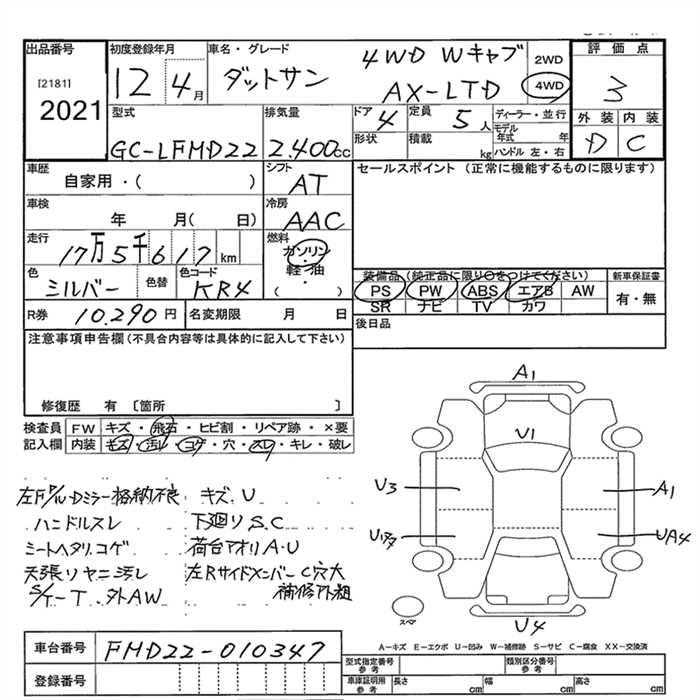 出品番号
[2181]
2021
初度登録年月
12 4月
車名・グレード
ダットサン
4WD Wキャブ
AX-LTD
2WD
4WD
評価点
3
外装 内装
D C
型式
GC-LFMD22
排気量
2.400cc
ドア
4
形状
定員
5人
積載
kg
ディーラー・並行
モデル年式 年
ハンドル 左・右
車歴
自家用・( )
シフト
AT
セールスポイント(正常に機能するものに限ります)
車検
年 月( 日)
冷房
AAC
走行
17万5千617km
燃料
ガソリン
軽・油
( )
色
シルバー
色替
色コード
KR4
装備品(純正品に限り〇をつけてください)
新車保証書
PS PW ABS エアB AW
SR ナビ TV カワ
有・無
R券 10.290円
名変期限 月 日
後日品
注意事項申告欄(不具合内容等は具体的に記入して下さい)
修復歴 有〔箇所 〕
検査員記入欄
FW キズ・飛石・ヒビ割・リペア跡・×要
内装 キズ・汚レ・コゲ・穴・スレ・キレ・破レ
左F D/U-Dミラー格納不良
ハンドルスレ
シートヘタリ.コゲ
天張リヤニ汚レ
S/ケーT.外AW
キズ.U
下廻りS.C
荷台アオリA.U
左Rサイドメンバー C穴大
補修外粗
A1
U1
U3
A1
UA4
U4
スペア
A-キズ E-エクボ U-凹み W-補修跡 S-サビ C-腐食 XX-交換済
車台番号
FMD22-010347
登録番号
型式指定番号 参考
類別区分番号 参考
車庫証明用 参考
長さ cm
幅 cm
高さ cm